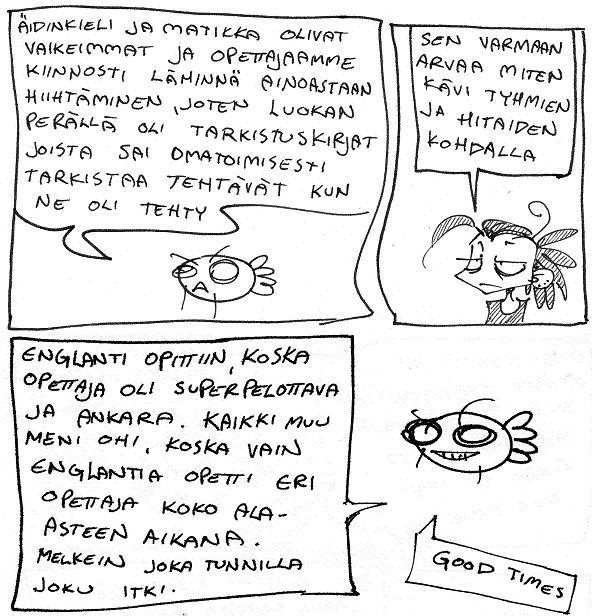 ÄIDINKIELI JA MATIKKA OLIVAT
VAIKEIMMAT JA OPETTAJAAMME
KIINNOSTI LÄHINNÄ AINOASTAAN
HIIHTÄMINEN, JOTEN LUOKAN
PERÄLLÄ OLI TARKISTUSKIRJAT
JOISTA SAI OMATOIMISESTI
TARKISTAA TEHTÄVÄT KUN
NE OLI TEHTY
SEN VARMAAN
ARVAA MITEN
KÄVI TYHMIEN
JA HITAIDEN
KOHDALLA
ENGLANTI OPITTIIN, KOSKA
OPETTAJA OLI SUPERPELOTTAVA
JA ANKARA. KAIKKI MUU
MENI OHI, KOSKA VAIN
ENGLANTIA OPETTI ERI
OPETTAJA KOKO ALA-
ASTEEN AIKANA.
MELKEIN JOKA TUNNILLA
JOKU ITKI.
GOOD TIMES